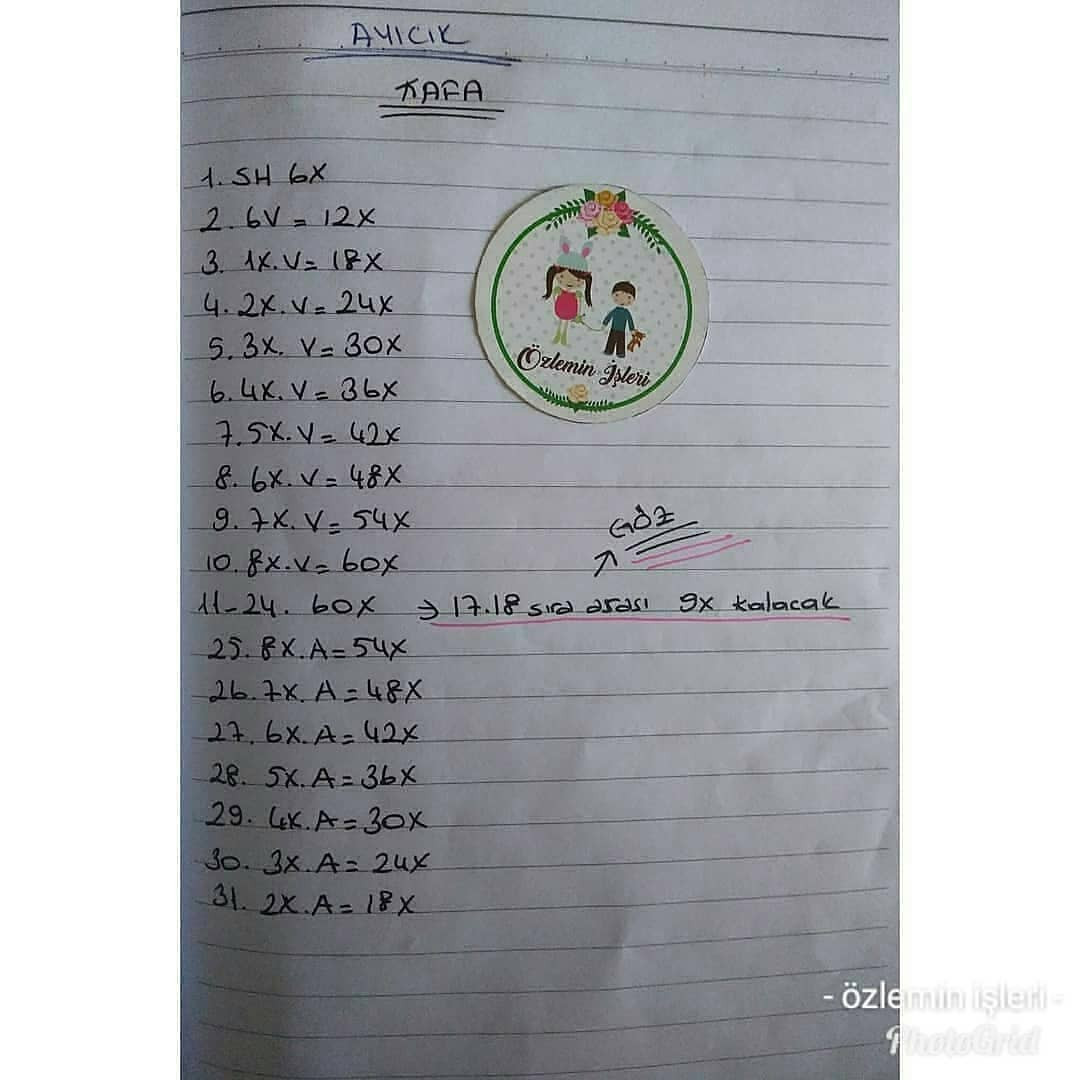 AYICIK
KAFA
1. SH 6X
2. 6V = 12X
3. 1X.V= 18X
4. 2X.V= 24X
5. 3X. V= 30X
6. 4X.V= 36X
7. 5X.V= 42X
8. 6X.V= 48X
9. 7X.V= 54X
10. 8X.V= 60X
GÖZ
11-24. 60X → 17.18 sıra arası 9X kalacak
25. 8X.A= 54X
26. 7X.A= 48X
27. 6X.A= 42X
28. 5X.A= 36X
29. 4X.A= 30X
30. 3X.A= 24X
31. 2X.A= 18X
Özlemin İşleri
- özlemin işleri -
PhotoGrid